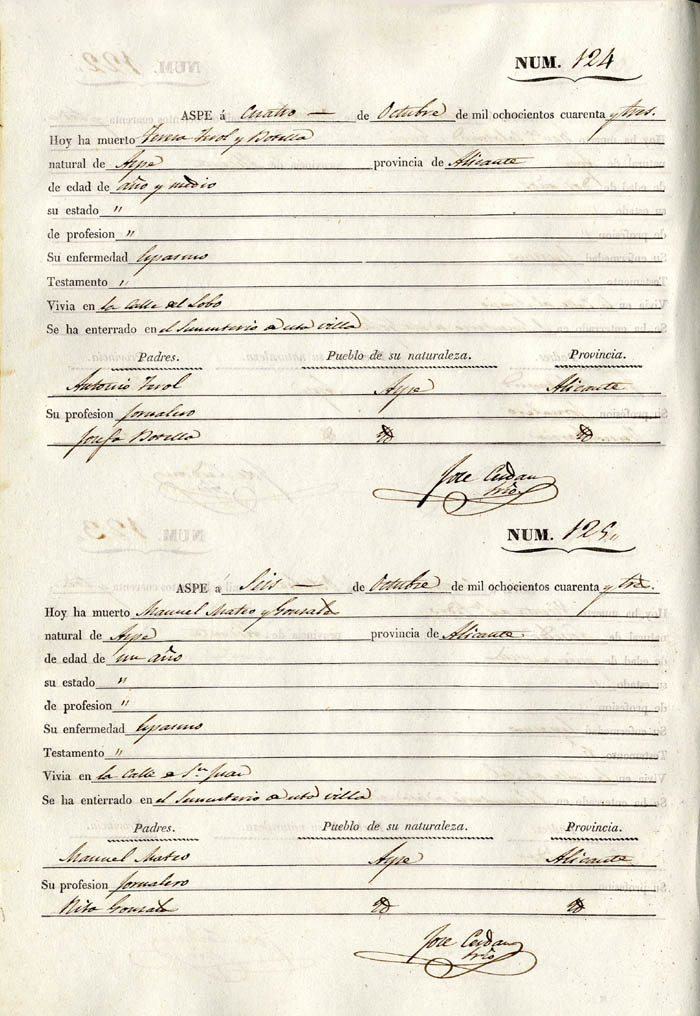 NUM. 124
ASPE á Cuatro — de Octubre de mil ochocientos cuarenta y tres.
Hoy ha muerto Teresa Terol y Botella
natural de Aspe provincia de Alicante
de edad de año y medio
su estado "
de profesion "
Su enfermedad Espasmo
Testamento "
Vivia en la Calle del Lobo
Se ha enterrado en el Sementerio de esta villa
Padres. Pueblo de su naturaleza. Provincia.
Antonio Terol Aspe Alicante
Su profesion Jornalero
Josefa Botella Yd Yd
Jose Cerdan
Srio
NUM. 125"
ASPE á Seis — de Octubre de mil ochocientos cuarenta y tres.
Hoy ha muerto Manuel Mateo y Gonsalez
natural de Aspe provincia de Alicante
de edad de un año
su estado "
de profesion "
Su enfermedad Espasmo
Testamento "
Vivia en la Calle de Sn Juan
Se ha enterrado en el Sementerio de esta villa
Padres. Pueblo de su naturaleza. Provincia.
Manuel Mateo Aspe Alicante
Su profesion Jornalero
Rita Gonsalez Yd Yd
Jose Cerdan
Srio